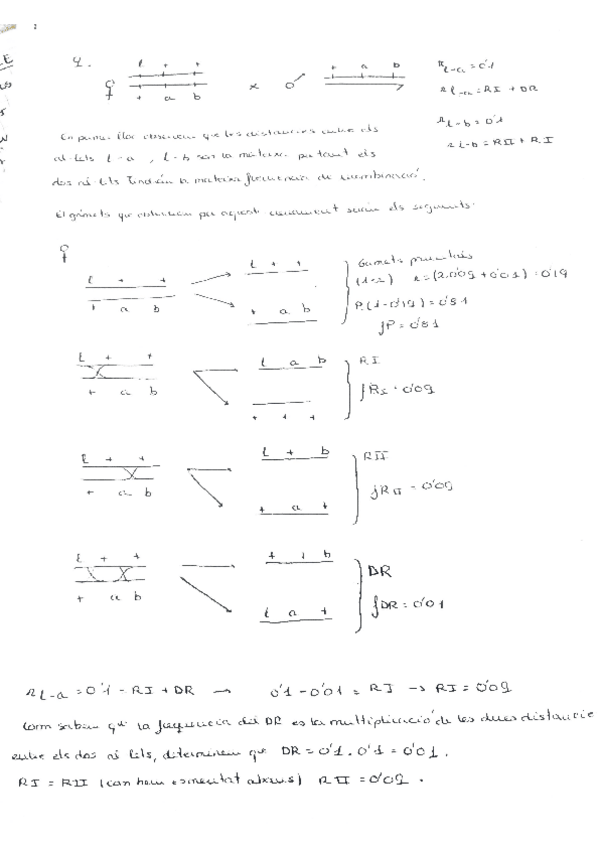 4.
l + +
+ a b
♀ x ♂
+ a b
r l-a = 0'1
r l-a = RI + DR
r l-b = 0'1
r l-b = RII + RI
En primer lloc observem que les distàncies entre els
al·lels l-a, l-b són la mateixa per tant els
dos al·lels tindràn la mateixa freqüència de recombinació.
El gàmets que obtindrem per aquest creuament seràn els següents:
♀
l + +
+ a b
l + +
+ a b
Gamets parentals
(1-r) r = (2.0'09 + 0'01) = 0'19
P. (1-0'19) = 0'81
fP = 0'81
l + +
+ a b
l a b
+ + +
RI
fRI = 0'09
l + +
+ a b
l + b
+ a +
RII
fRII = 0'09
l + +
+ a b
+ + b
l a +
DR
fDR = 0'01
r l-a = 0'1 - RI + DR → 0'1 - 0'01 = RI → RI = 0'09
Com sabem que la freqüencia del DR es la multiplicació de les dues distancie
entre els dos al·lels, determinem que DR = 0'1 . 0'1 = 0'01.
RI = RII (com hem comentat abans) RII = 0'09.